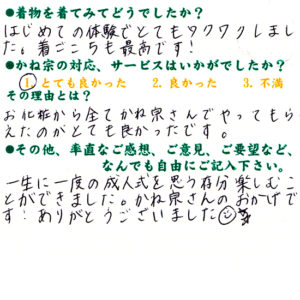 ●着物を着てみてどうでしたか？
はじめての体験でとてもワクワクしまし
た。着ごこちも最高です！
●かね宗の対応、サービスはいかがでしたか？
1. とても良かった　2. 良かった　3. 不満
その理由とは？
お化粧から全てかね宗さんでやってもら
えたのがとても良かったです。
●その他、率直なご感想、ご意見、ご要望など、
なんでも自由にご記入下さい。
一生に一度の成人式を思う存分楽しむこ
とができました。かね宗さんのおかげで
す！ありがとうございました